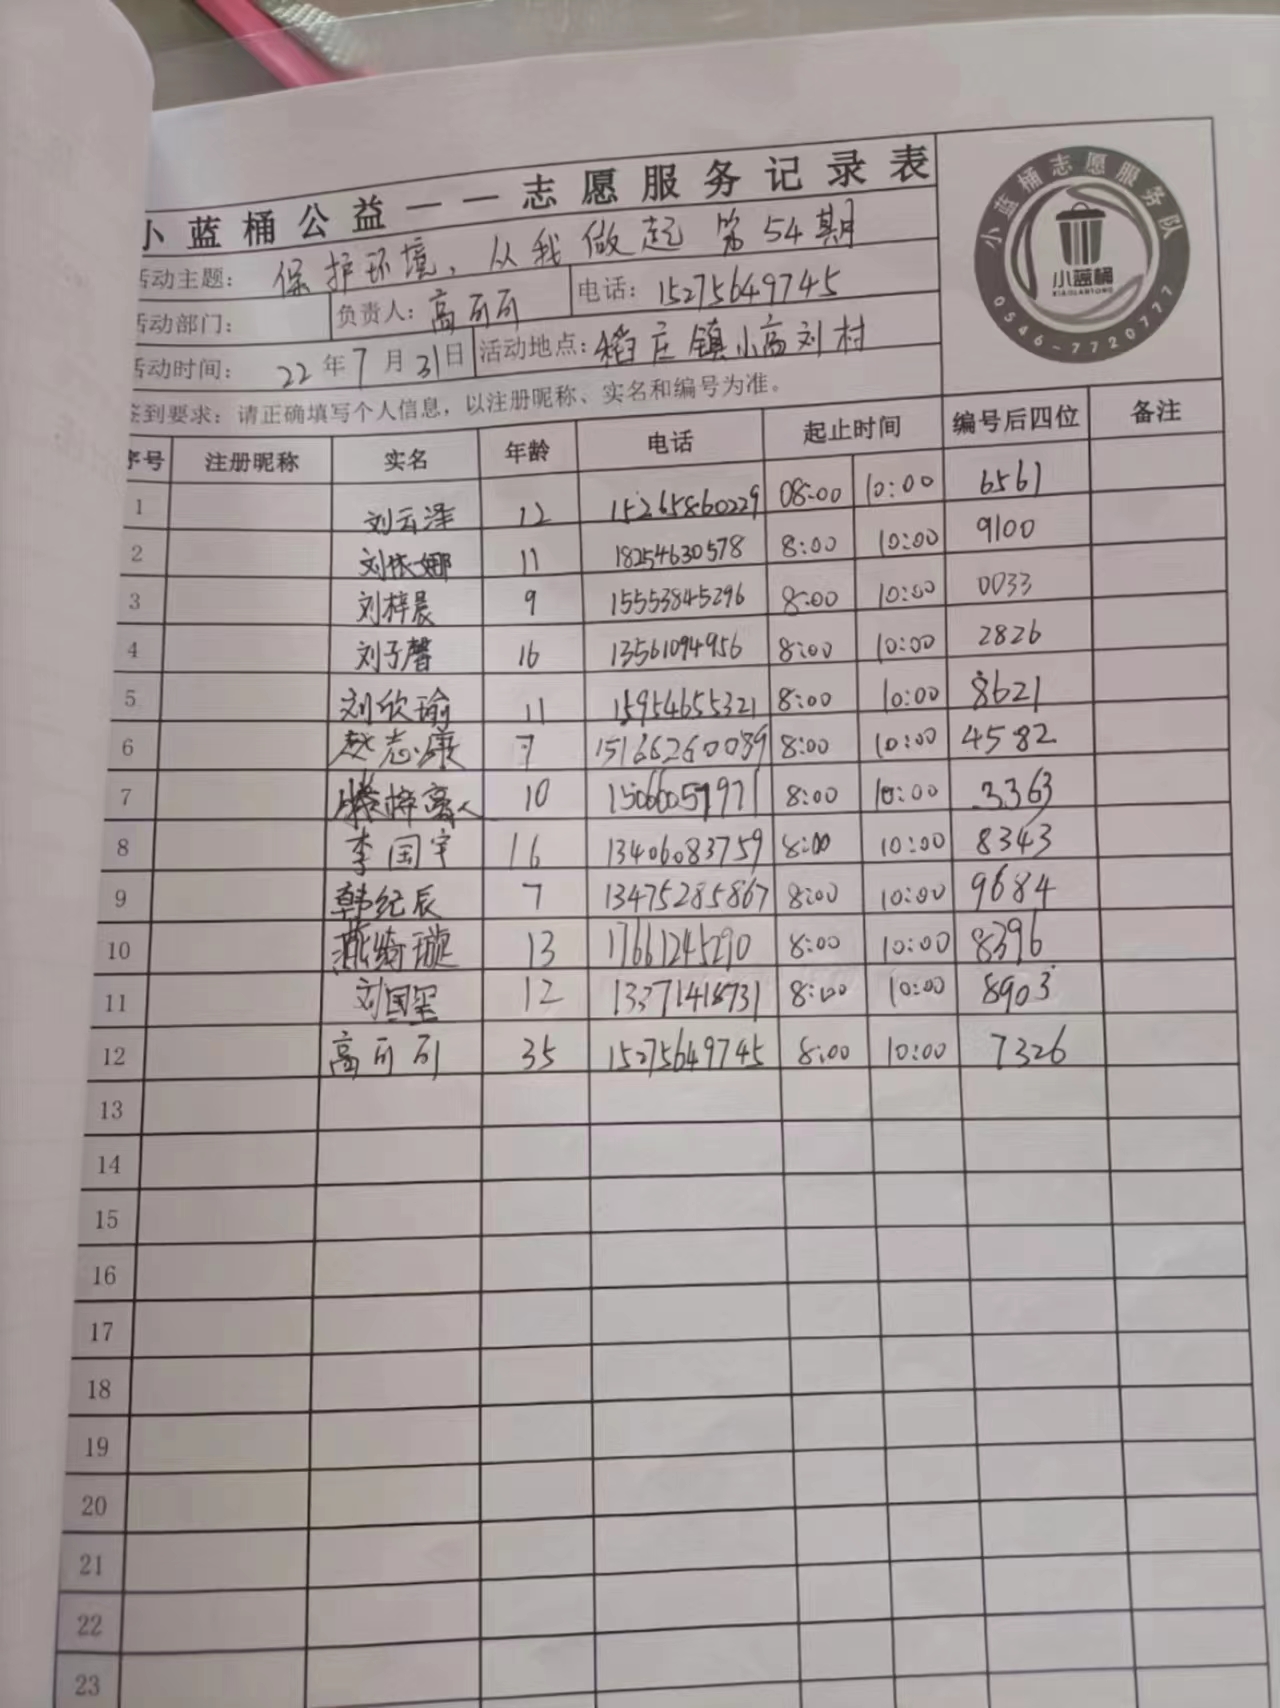 小蓝桶公益——志愿服务记录表
活动主题: 保护环境,从我做起 第54期
活动部门: 负责人: 高可可 电话: 15275649745
活动时间: 22年7月31日 活动地点: 稻庄镇小高刘村
签到要求: 请正确填写个人信息,以注册昵称、实名和编号为准。
小蓝桶志愿服务队
小蓝桶
XIAOLANTONG
0546-7720777
序号 注册昵称 实名 年龄 电话 起止时间 编号后四位 备注
1 刘云泽 12 15265860229 08:00 10:00 6561
2 刘依娜 11 18254630578 8:00 10:00 9100
3 刘梓晨 9 15553845296 8:00 10:00 0033
4 刘子馨 16 13561094956 8:00 10:00 2826
5 刘欣瑜 11 15954655321 8:00 10:00 8621
6 赵志康 7 15166260089 8:00 10:00 4582
7 10 15066051971 8:00 10:00 3363
8 李国宇 16 13406083759 8:00 10:00 8343
9 韩纪辰 7 13475285867 8:00 10:00 9684
10 燕绮璇 13 17661245290 8:00 10:00 8396
11 刘国玺 12 13371418731 8:00 10:00 8903
12 高可可 35 15275649745 8:00 10:00 7326
13
14
15
16
17
18
19
20
21
22
23